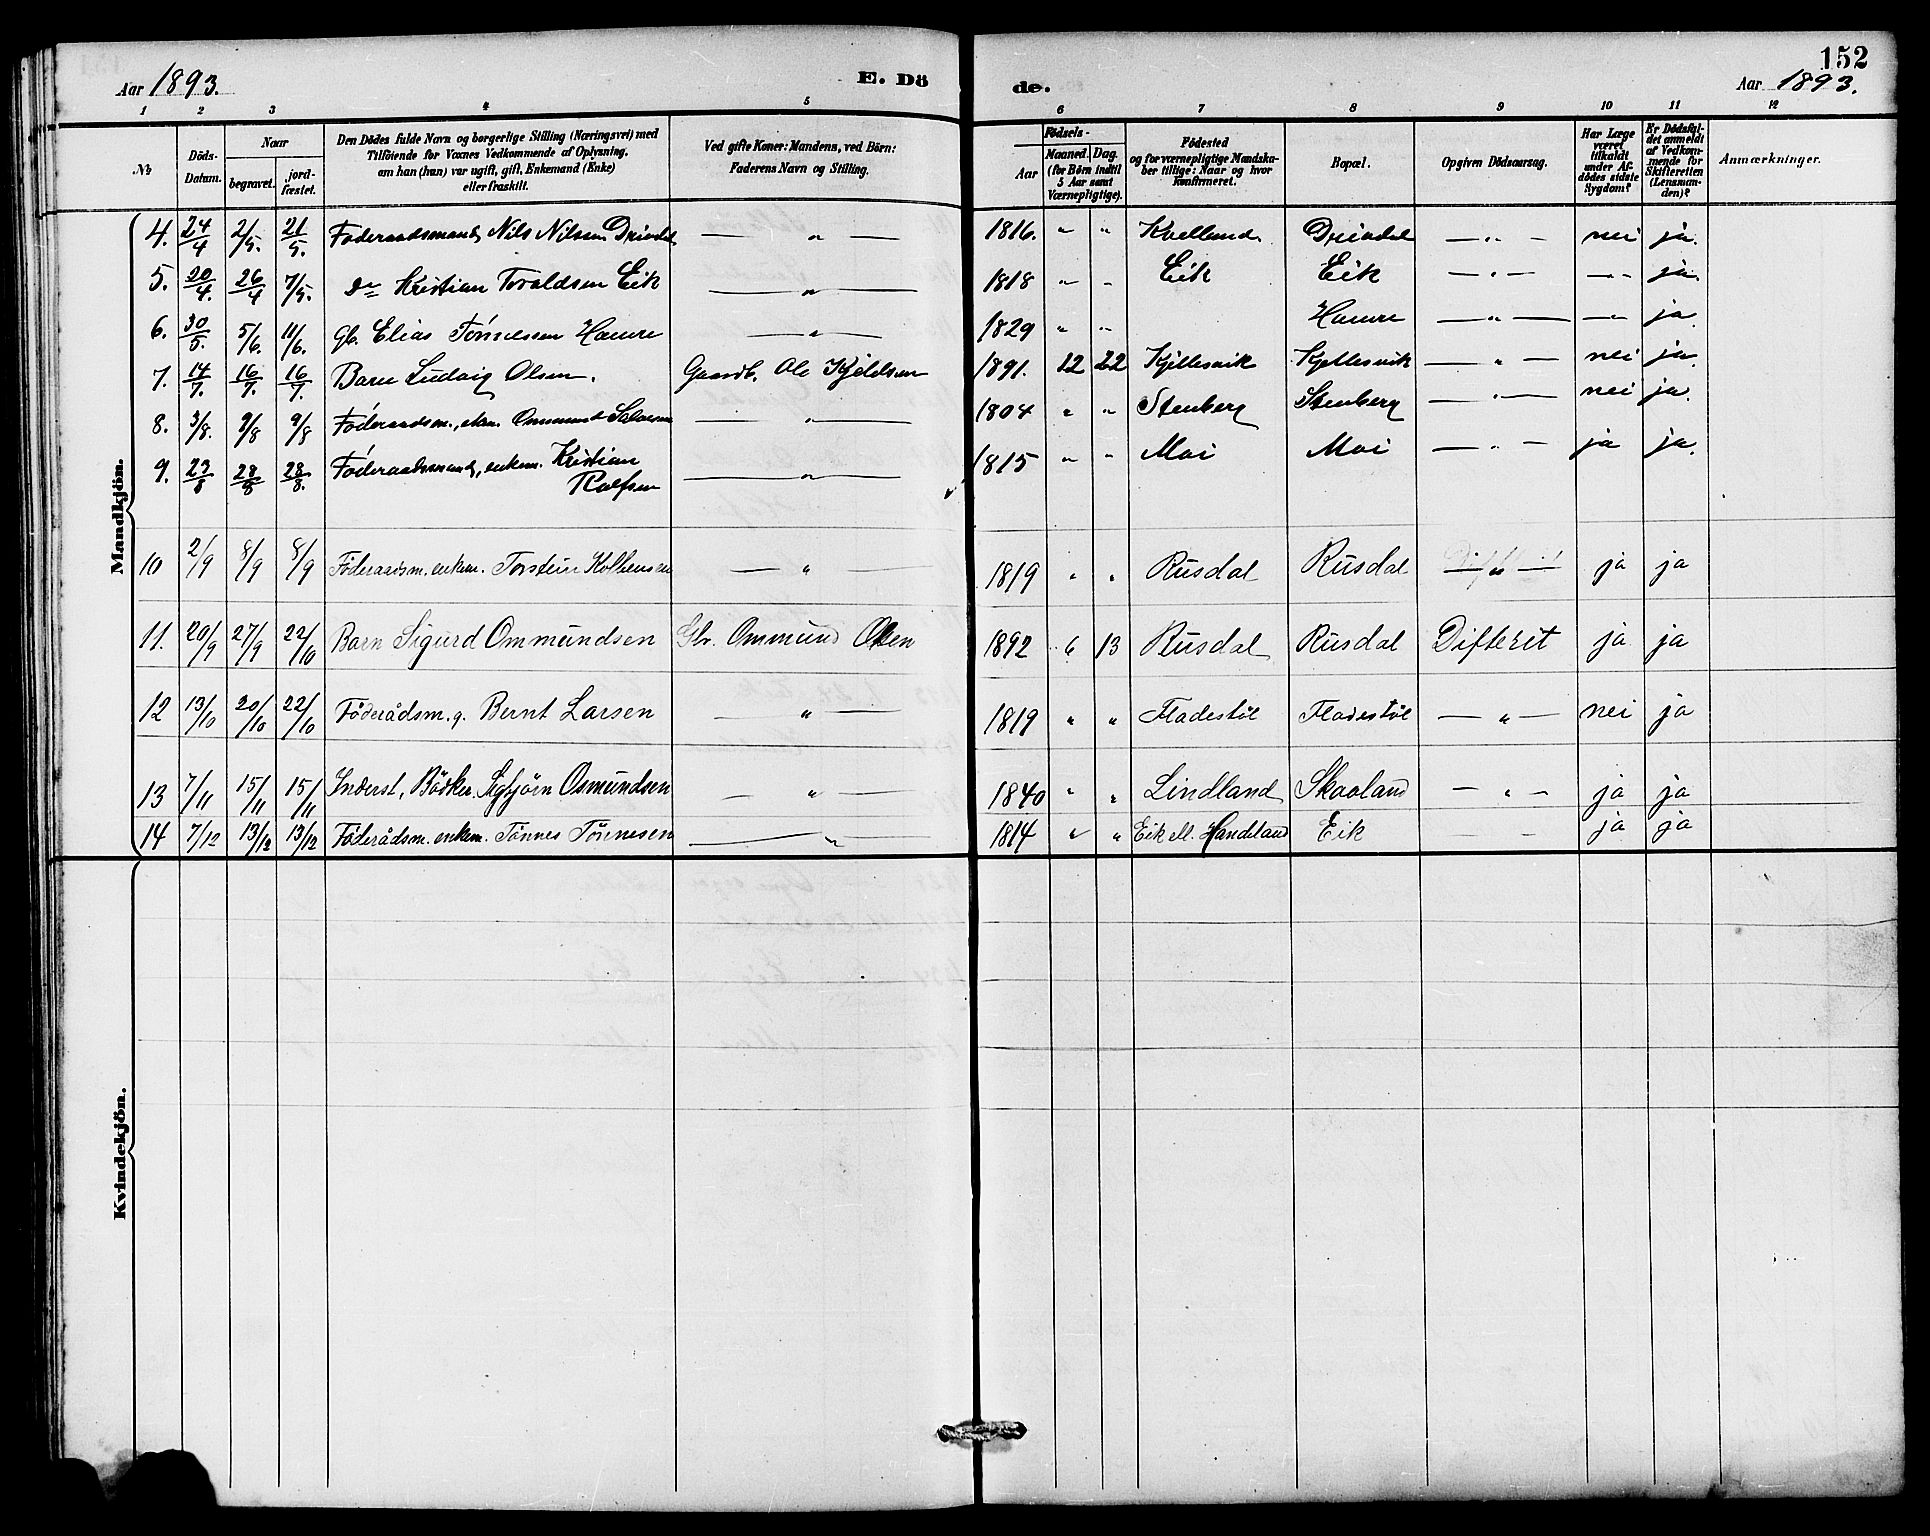 152
Aar 1893. E. Dö de. Aar 1893.
1 2 3 4 5 6 7 8 9 10 11 12
№ Döds-Datum. Naar begravet. jordfæstet. Den Dödes fulde Navn og borgerlige Stilling (Næringsvei) med Tilföiende for Voxnes Vedkommende af Oplysning, om han (hun) var ugift, gift, Enkemand (Enke) eller fraskilt. Ved gifte Koner: Mandens, ved Börn: Faderens Navn og Stilling. Födsels- Aar Maaned. Dag. (for Börn indtil 5 Aar samt Værnepligtige). Födested og for værnepligtige Mandskaber tillige: Naar og hvor konfirmeret. Bopæl. Opgiven Dödsaarsag. Har Læge været tilkaldt under Afdödes sidste Sygdom? Er Dödsfaldet anmeldt af Vedkommende for Skifteretten (Lensmanden)? Anmærkninger.
Mandkjön.
4. 24/4 2/5. 21/5. Föderaadsmand Nils Nilsen Dreidal — " — 1816. " " Kvellund. Dreidal — " — nei ja.
5. 20/4. 26/4 7/5. Do Kristian Tvraldsen Eik — " — 1818 " " Eik Eik — " — — " — ja.
6. 30/5. 5/6. 11/6. Gb. Elias Tönnessen Hamre — " — 1829 " " Hamre — " — — " — ja.
7. 14/7. 16/7. 16/7. Barn Ludvig Olsen. Gaardb. Ole Kjeldsen 1891. 12 22 Kjellesvik Kjellesvik — " — nei ja.
8. 3/8. 9/8 9/8 Föderaadsm., ekm. Ommund Salvesen — " — 1804 " " Stenberg Stenberg — " — nei ja.
9. 23/8 28/8 28/8. Föderaadsmand, enkem. Kristian Rolfsen — " — 1815 " " Moi Moi — " — ja ja.
10 2/9 8/9 8/9 Föderaadsm. enkem. Torstein Kolbensen — " — 1819 " " Rusdal Rusdal — " — ja ja
11. 20/9 27/9 22/10 Barn Sigurd Ommundsen Gbr. Ommund Olsen 1892 6 13 Rusdal Rusdal Difterit ja ja
12 13/10 20/10 22/10 Föderådsm. g. Bernt Larsen — " — 1819 " " Fladestöl Fladestöl — " — nei ja
13 7/11 15/11 15/11 Inderst, Bödker. Sigbjörn Osmundsen — " — 1840 " " Lindland Skaaland — " — ja ja
14 7/12 13/12 13/12 Föderådsm. enkem. Tönnes Tönnesen — " — 1814 " " Eik ell. Handeland Eik — — ja ja
Kvindekjön.